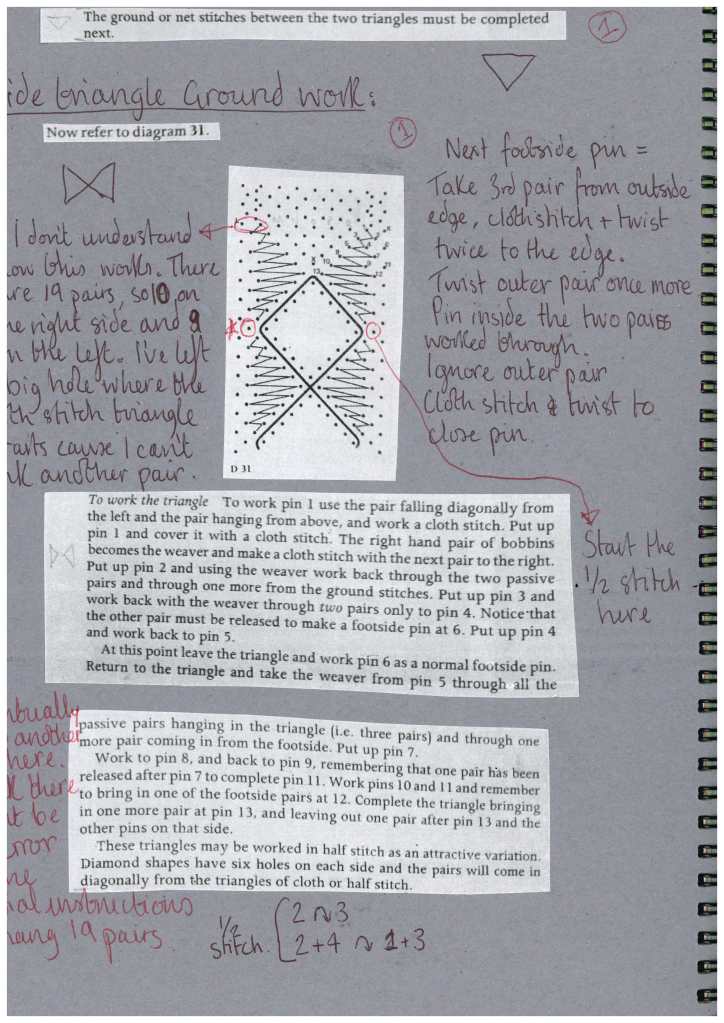 The ground or net stitches between the two triangles must be completed
next.
1
ide triangle Ground work:
Now refer to diagram 31.
1
Next footside pin =
Take 3rd pair from outside
edge, clothstitch + twist
twice to the edge.
Twist outer pair once more
Pin inside the two pairs
worked through.
Ignore outer pair
Cloth stitch & twist to
close pin.
I don't understand
ow this works. There
re 19 pairs, so 10 on
he right side and 9
n the left. I've left
big hole where the
th stitch triangle
arts cause I can't
k another pair.
D 31
To work the triangle To work pin 1 use the pair falling diagonally from
the left and the pair hanging from above, and work a cloth stitch. Put up
pin 1 and cover it with a cloth stitch. The right hand pair of bobbins
becomes the weaver and make a cloth stitch with the next pair to the right.
Put up pin 2 and using the weaver work back through the two passive
pairs and through one more from the ground stitches. Put up pin 3 and
work back with the weaver through two pairs only to pin 4. Notice that
the other pair must be released to make a footside pin at 6. Put up pin 4
and work back to pin 5.
At this point leave the triangle and work pin 6 as a normal footside pin.
Return to the triangle and take the weaver from pin 5 through all the
Start the
1/2 stitch
here
passive pairs hanging in the triangle (i.e. three pairs) and through one
more pair coming in from the footside. Put up pin 7.
Work to pin 8, and back to pin 9, remembering that one pair has been
released after pin 7 to complete pin 11. Work pins 10 and 11 and remember
to bring in one of the footside pairs at 12. Complete the triangle bringing
in one more pair at pin 13, and leaving out one pair after pin 13 and the
other pins on that side.
These triangles may be worked in half stitch as an attractive variation.
Diamond shapes have six holes on each side and the pairs will come in
diagonally from the triangles of cloth or half stitch.
ntually
another
here.
k there
t be
error
he
nal instructions
hang 19 pairs.
1/2
stitch.
2 ~ 3
2+4 ~ 1+3